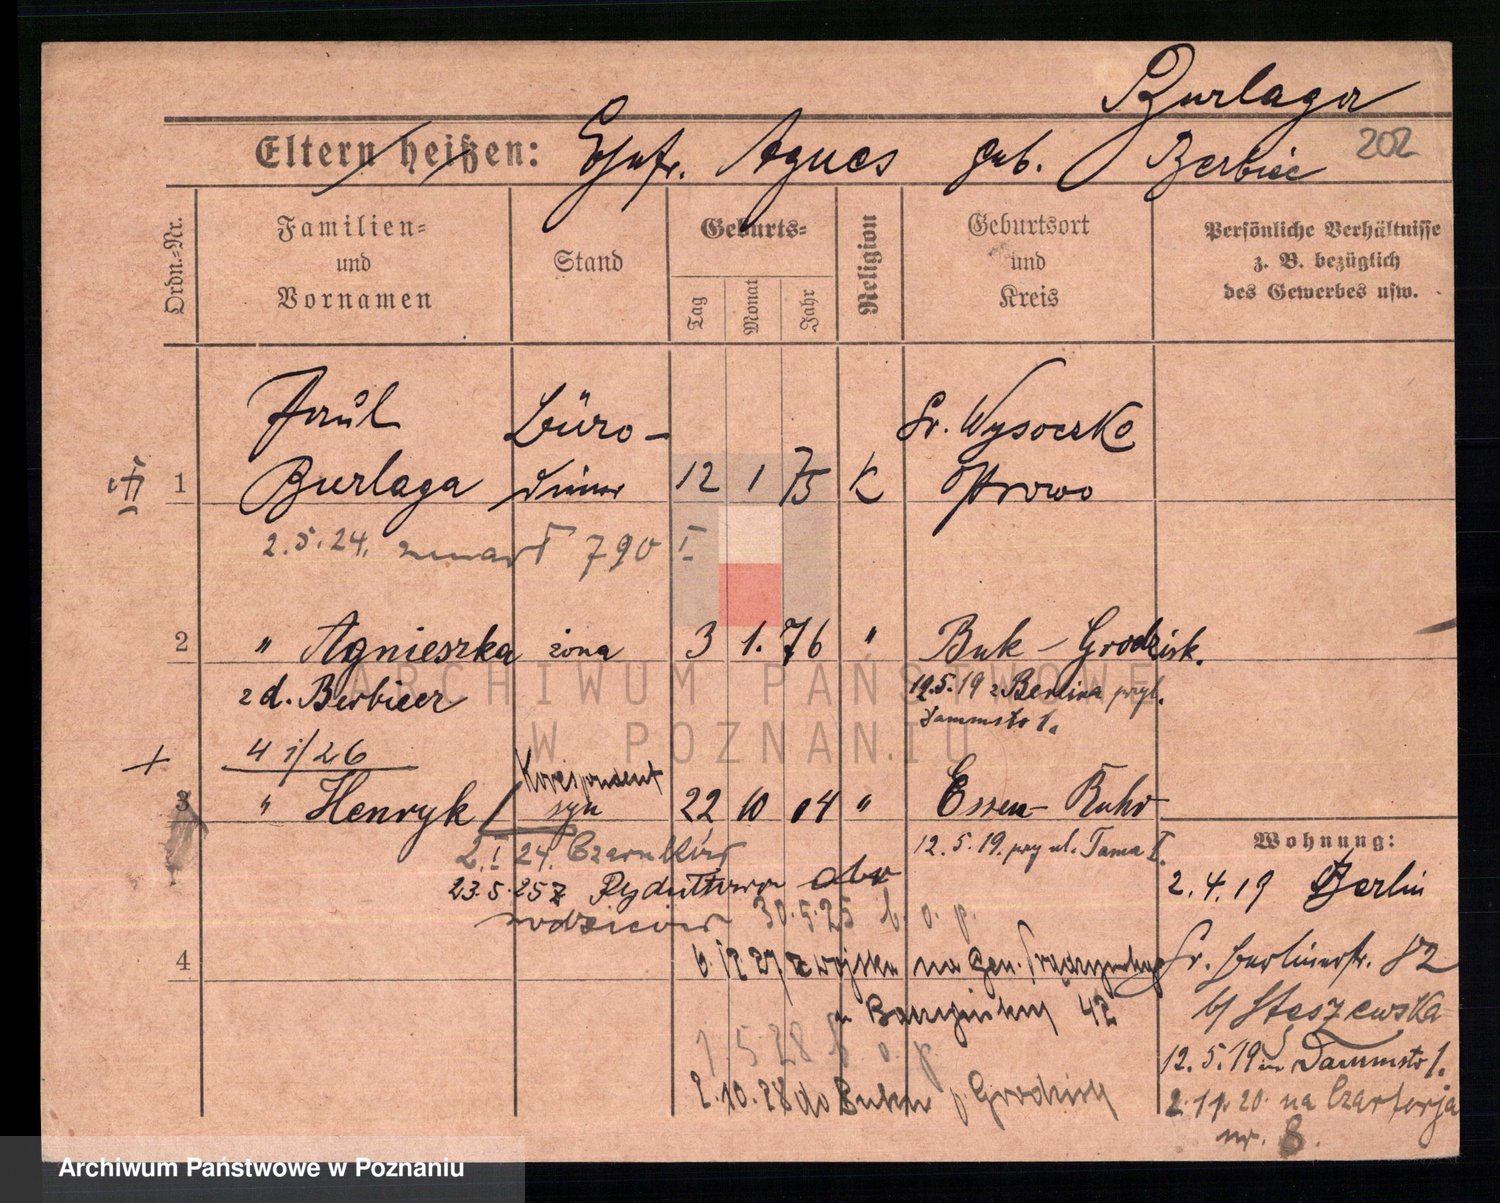 Burlaga
Eltern heißen: Ehefr. Agnes geb. Berbiec 202
Ordn.-Nr.
Familien- und Vornamen
Stand
Geburts-
Tag Monat Jahr
Religion
Geburtsort und Kreis
Persönliche Verhältnisse z. B. bezüglich des Gewerbes usw.
1 Paul Büro-
Burlaga diener 12 1 75 K Gr. Wysocko Ostrowo
2.5.24. zmarł 790 I
2 " Agnieszka żona 3 1. 76 " Buk - Grodzisk.
z d. Berbiecr 12.5.19 z Berlina przyb.
Dammstr 1.
4 1/26
Korespondent
3 " Henryk syn 22 10 04 " Essen - Ruhr
12.5.19. przy ul. Tama I.
Wohnung:
2.I 24. Czarnków
2.4.19 Berlin
23.5.25 z Rydułtowy obw
rodziców 30.5.25 b. o. p.
4 6.12 27 z wojska na Gen. Prądzyńskiego
Gr. Berlinerstr. 82
42
b/ Stęszewska
1.5.28 b. o. p.
12.5.19 in Dammstr 1.
2.10.28 do Buku p. Grodzisk
2.1 p. 20. na Czartorja
nr. 8.
ARCHIWUM PAŃSTWOWE
W POZNANIU
Archiwum Państwowe w Poznaniu